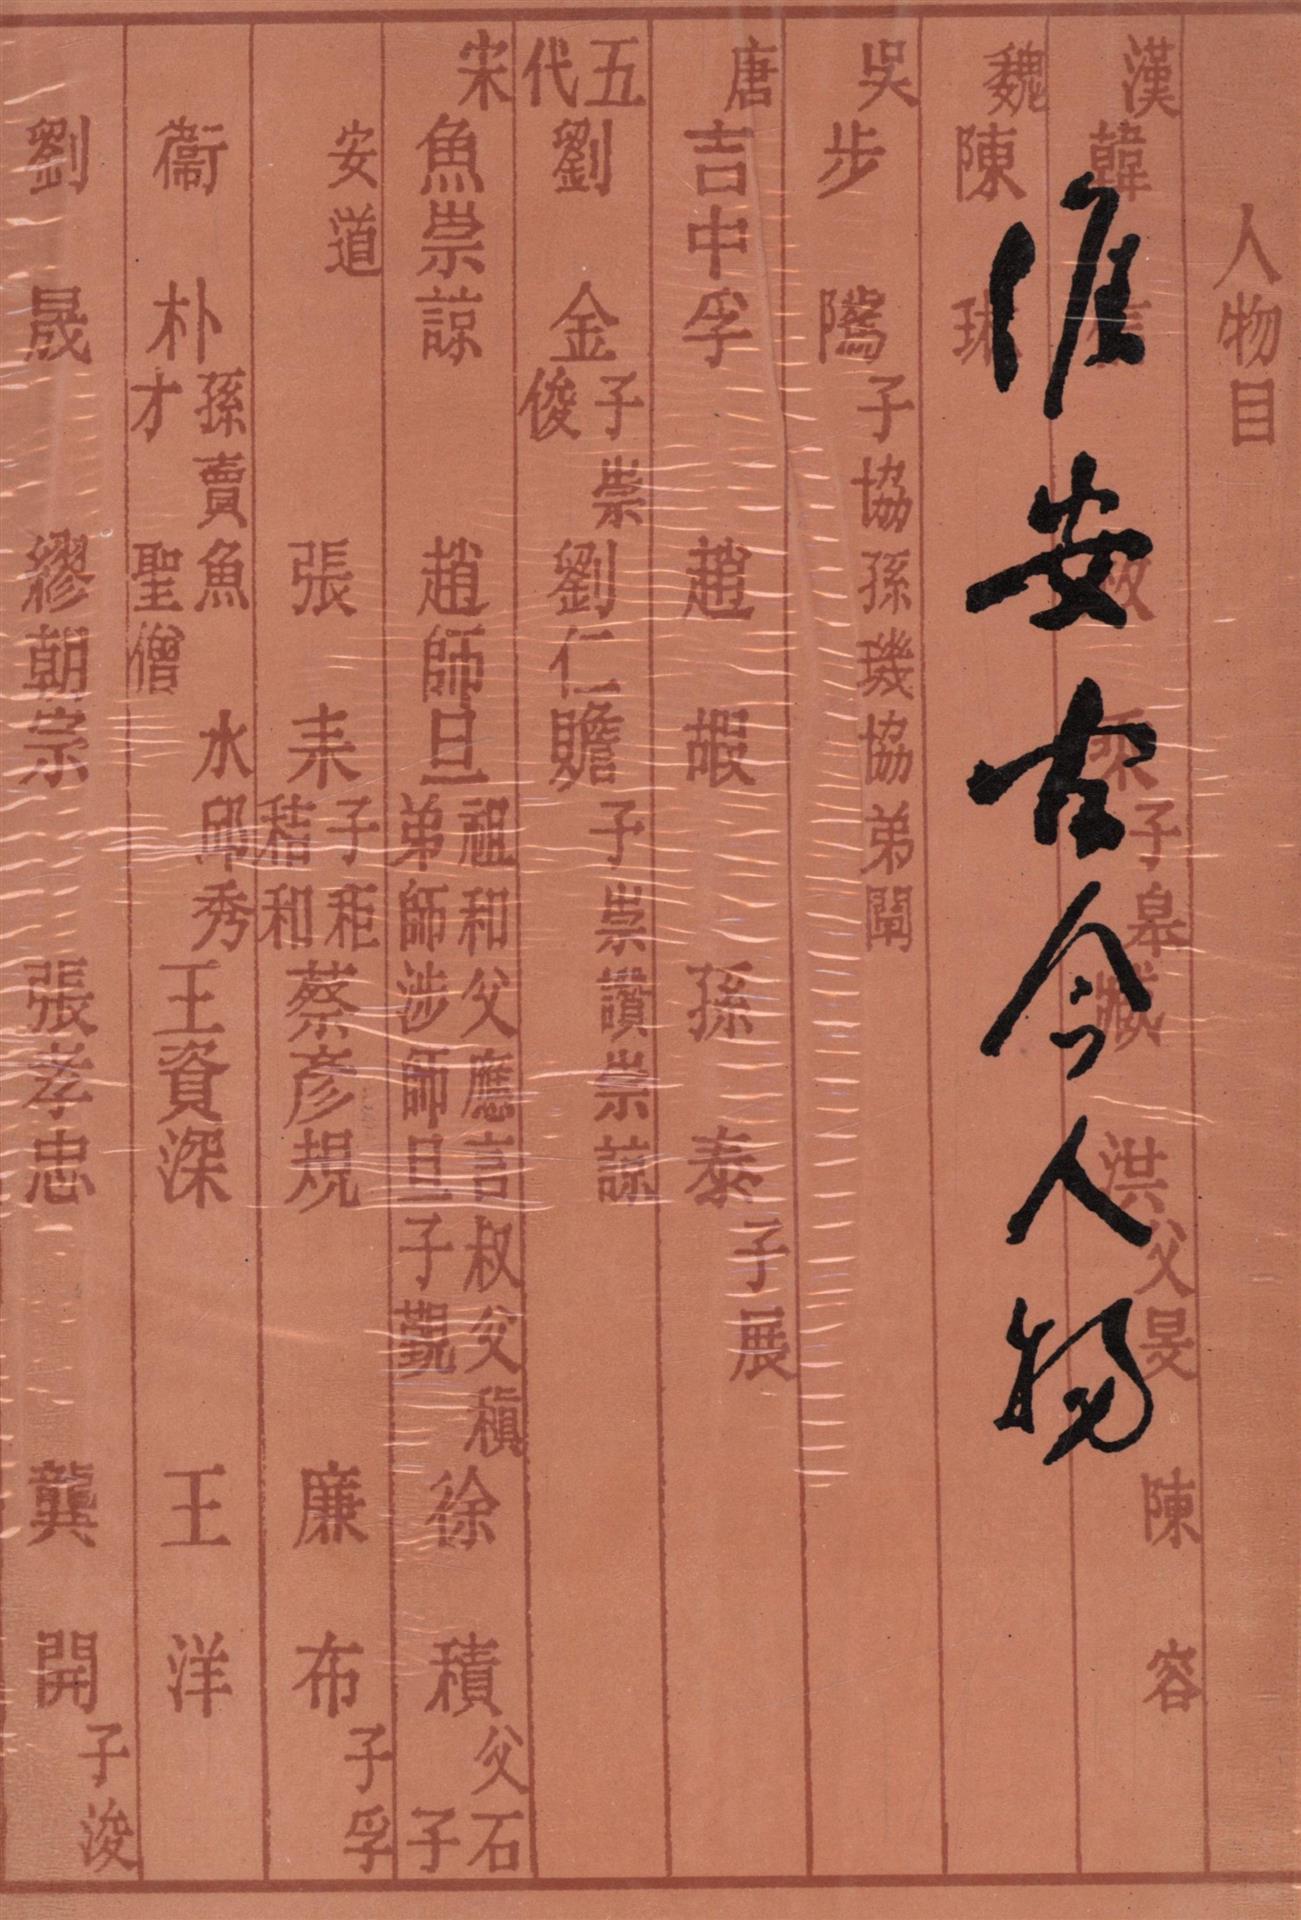 淮安古今人物
人物目
漢 韓信 枚乘 子皋 臧洪 父旻 陳容
魏 陳琳
吳 步騭 子協 孫璣 協弟闡
唐 吉中孚 趙嘏 孫泰 子展
五代 劉金 子崇俊 劉仁贍 子崇讚 崇諒
宋 魚崇諒 趙師旦 祖和 父應言 叔父稹 弟師涉 師旦子覲 徐積 父石 子
安道 張耒 子秬 秸 和 蔡彥規 廉布 子孚
衞朴 孫賣魚 水邱秀才 聖僧 王資深 王洋
劉晟 繆朝宗 張孝忠 龔開 子浚